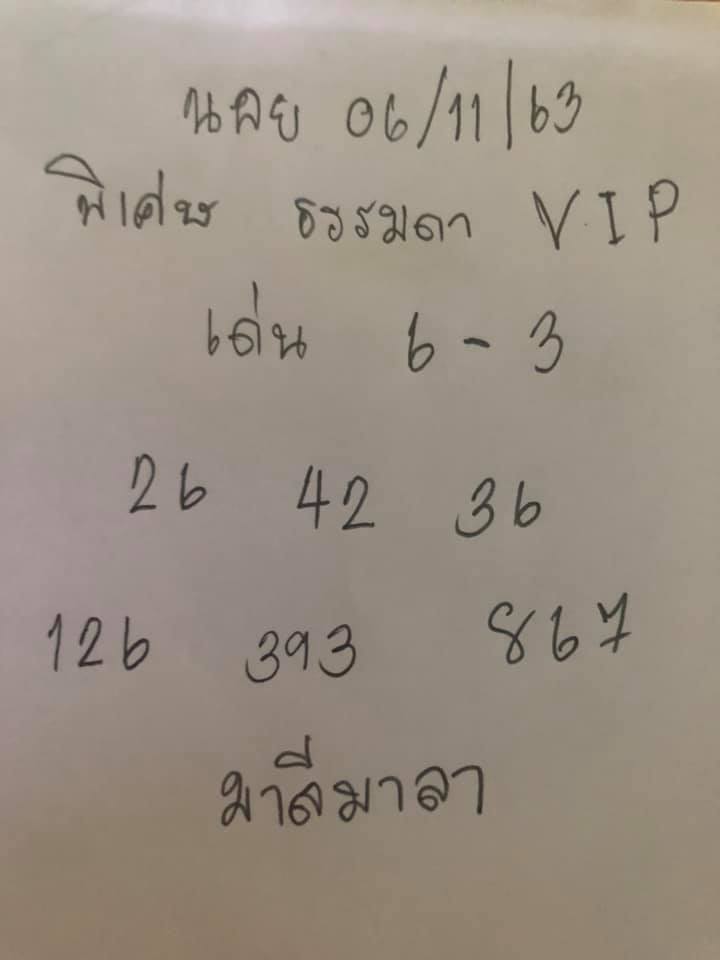 นอย 06/11/63
พิเศษ ธรรมดา VIP
เด่น 6-3
26 42 36
126 393 867
มาลีมาลา